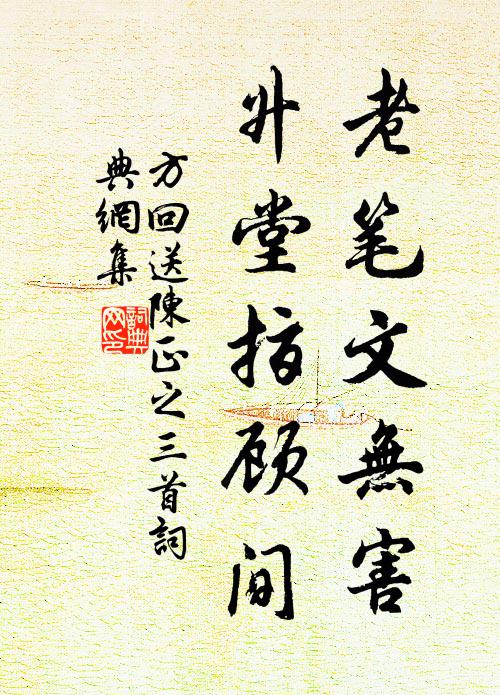 老笔文無害
升堂指顾间
方回送陳正之三首詞
典網集
詞典
网印